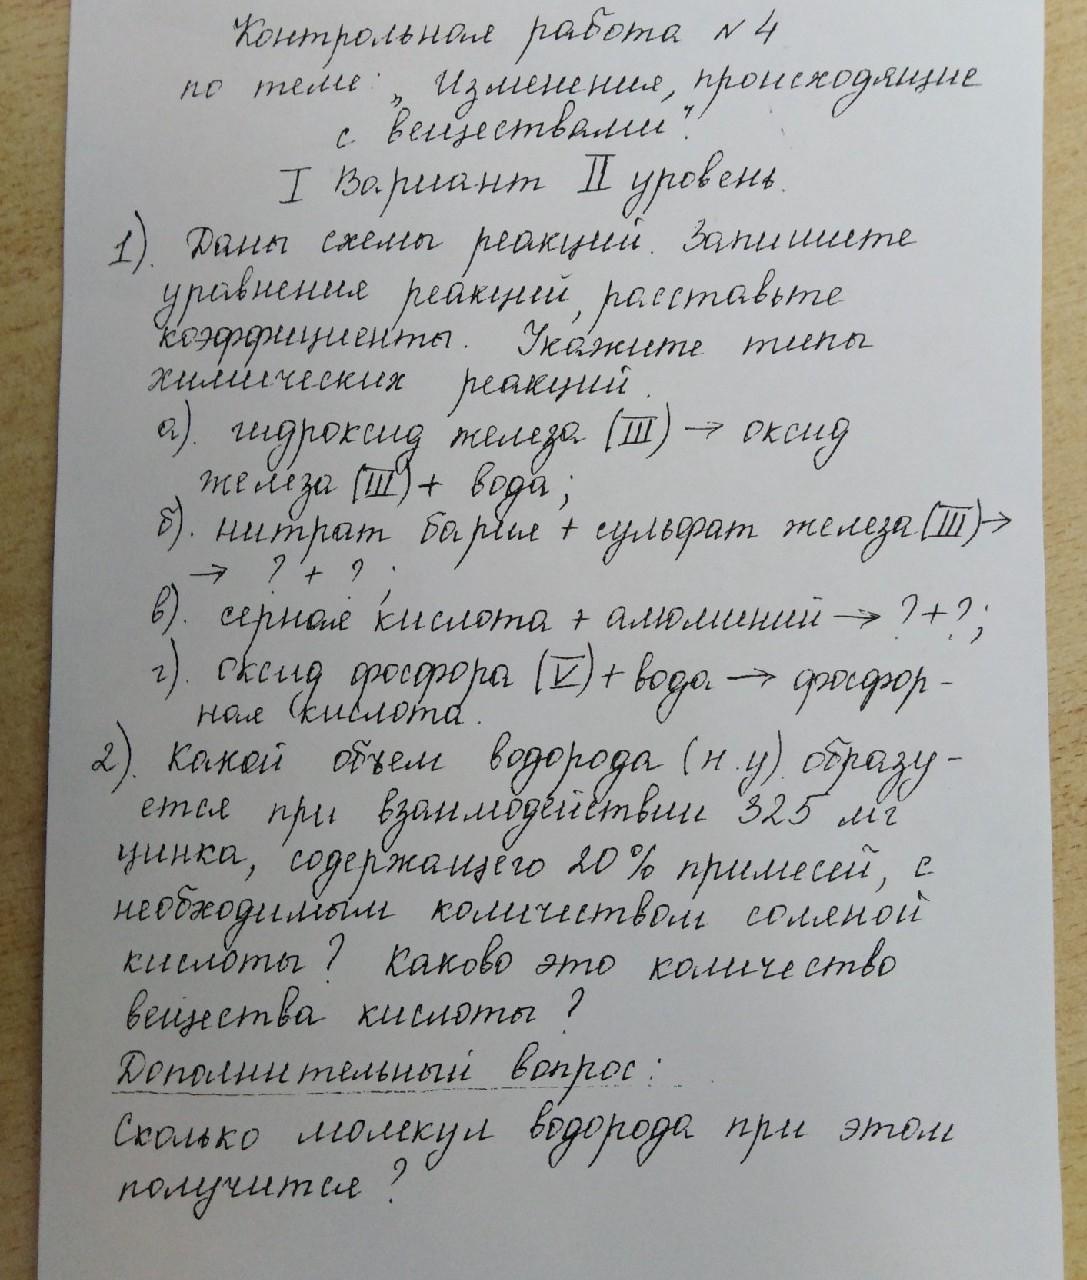 Контрольная работа № 4
по теме: „Изменения, происходящие
с веществами".
I Вариант II уровень.
1). Даны схемы реакций. Запишите
уравнения реакций, расставьте
коэффициенты. Укажите типы
химических реакций.
а). гидроксид железа (III) → оксид
железа (III) + вода;
б). нитрат бария + сульфат железа (III) →
→ ? + ? ;
в). серная кислота + алюминий → ? + ?;
г). оксид фосфора (V) + вода → фосфор-
ная кислота.
2). Какой объем водорода (н.у) образу-
ется при взаимодействии 325 мг
цинка, содержащего 20% примесей, с
необходимым количеством соляной
кислоты? Каково это количество
вещества кислоты?
Дополнительный вопрос:
Сколько молекул водорода при этом
получится?